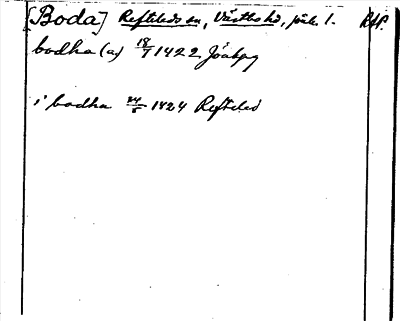 [Boda] Reftleds sn, Västbo hd, jök. l. RAP.
bodha (a) 18/7 1422 Jönkpg
i bodha 24/5 1424 Refteled